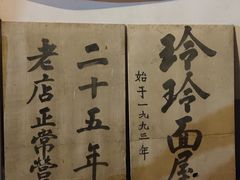 玲玲面屋
始于一九九三年
二十五年
老店正常营